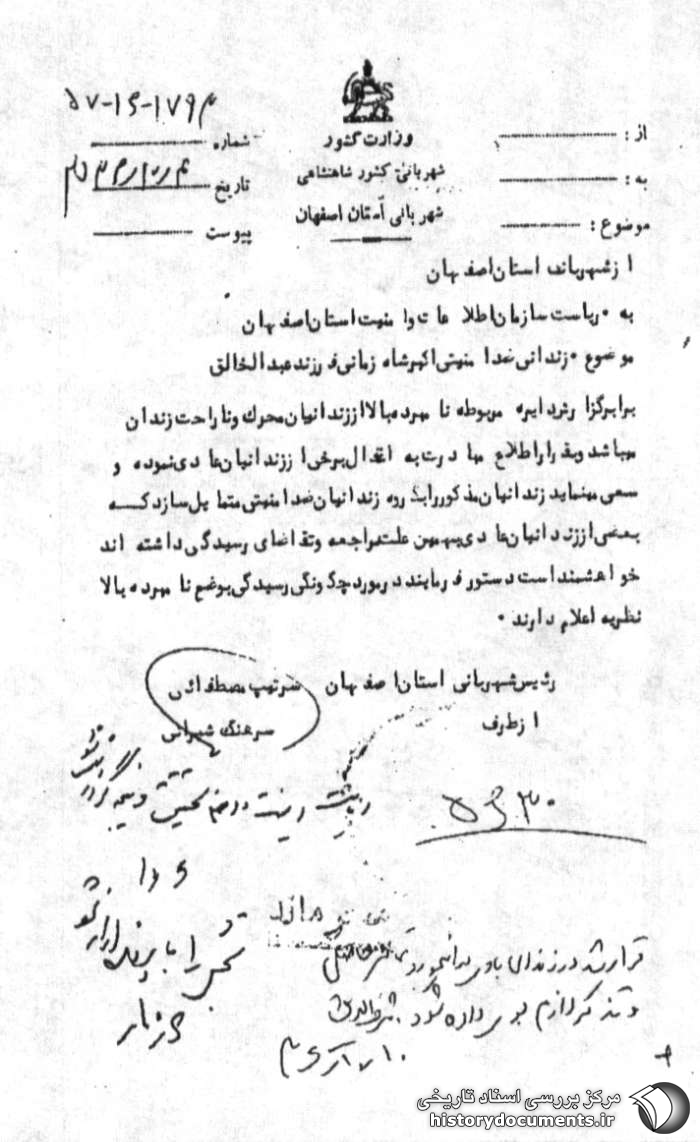 وزارت کشور
شهربانی کشور شاهنشاهی
شهربانی استان اصفهان
شماره ۵۷-۱۶-۱۷۹۳
تاریخ
پیوست
از :
به :
موضوع :
از شهربانی استان اصفهان
به ۰ ریاست سازمان اطلاعات و امنیت استان اصفهان
موضوع ۰ زندانی ضد امنیتی اکبر شاه زمانی فرزند عبدالخالق
برابر گزارش دایره مربوطه نامبرده بالا از زندانیان محرک و ناراحت زندان
میباشد و بقرار اطلاع مبادرت به اغفال برخی از زندانیان عادی نموده و
سعی مینماید زندانیان مذکور را بگروه زندانیان ضد امنیتی متمایل سازد کــه
بعضی از زندانیان عادی بهمین علت مراجعه و تقاضای رسیدگی داشته اند
خواهشمند است دستور فرمایند در مورد چگونگی رسیدگی بوضع نامبرده بالا
نظریه اعلام دارند ۰
رئیس شهربانی استان اصفهان سرتیپ مصطفائی
از طرف سرهنگ شیرانی
قرار شد در زندان با وی
و تذکر لازم بوی داده شود
مرکز بررسی اسناد تاریخی
historydocuments.ir